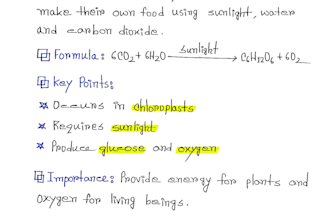 make their own food using sunlight, water
and carbon dioxide.
Formula: 6CO₂ + 6H₂O sunlight → C₆H₁₂O₆ + 6O₂
Key Points:
Occurs in chloroplasts
Requires sunlight
Produce glucose and oxygen
Importance: Provide energy for plants and
Oxygen for living beings.